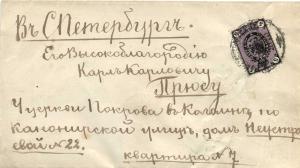 Въ С. Петербургъ.
Его Високоблагородію
Карлъ Карловичу
Прюсу
у церкви Покрова въ Коломнѣ, по
канонирской улицѣ, домъ Неустро
евой № 22.
квартира № 7